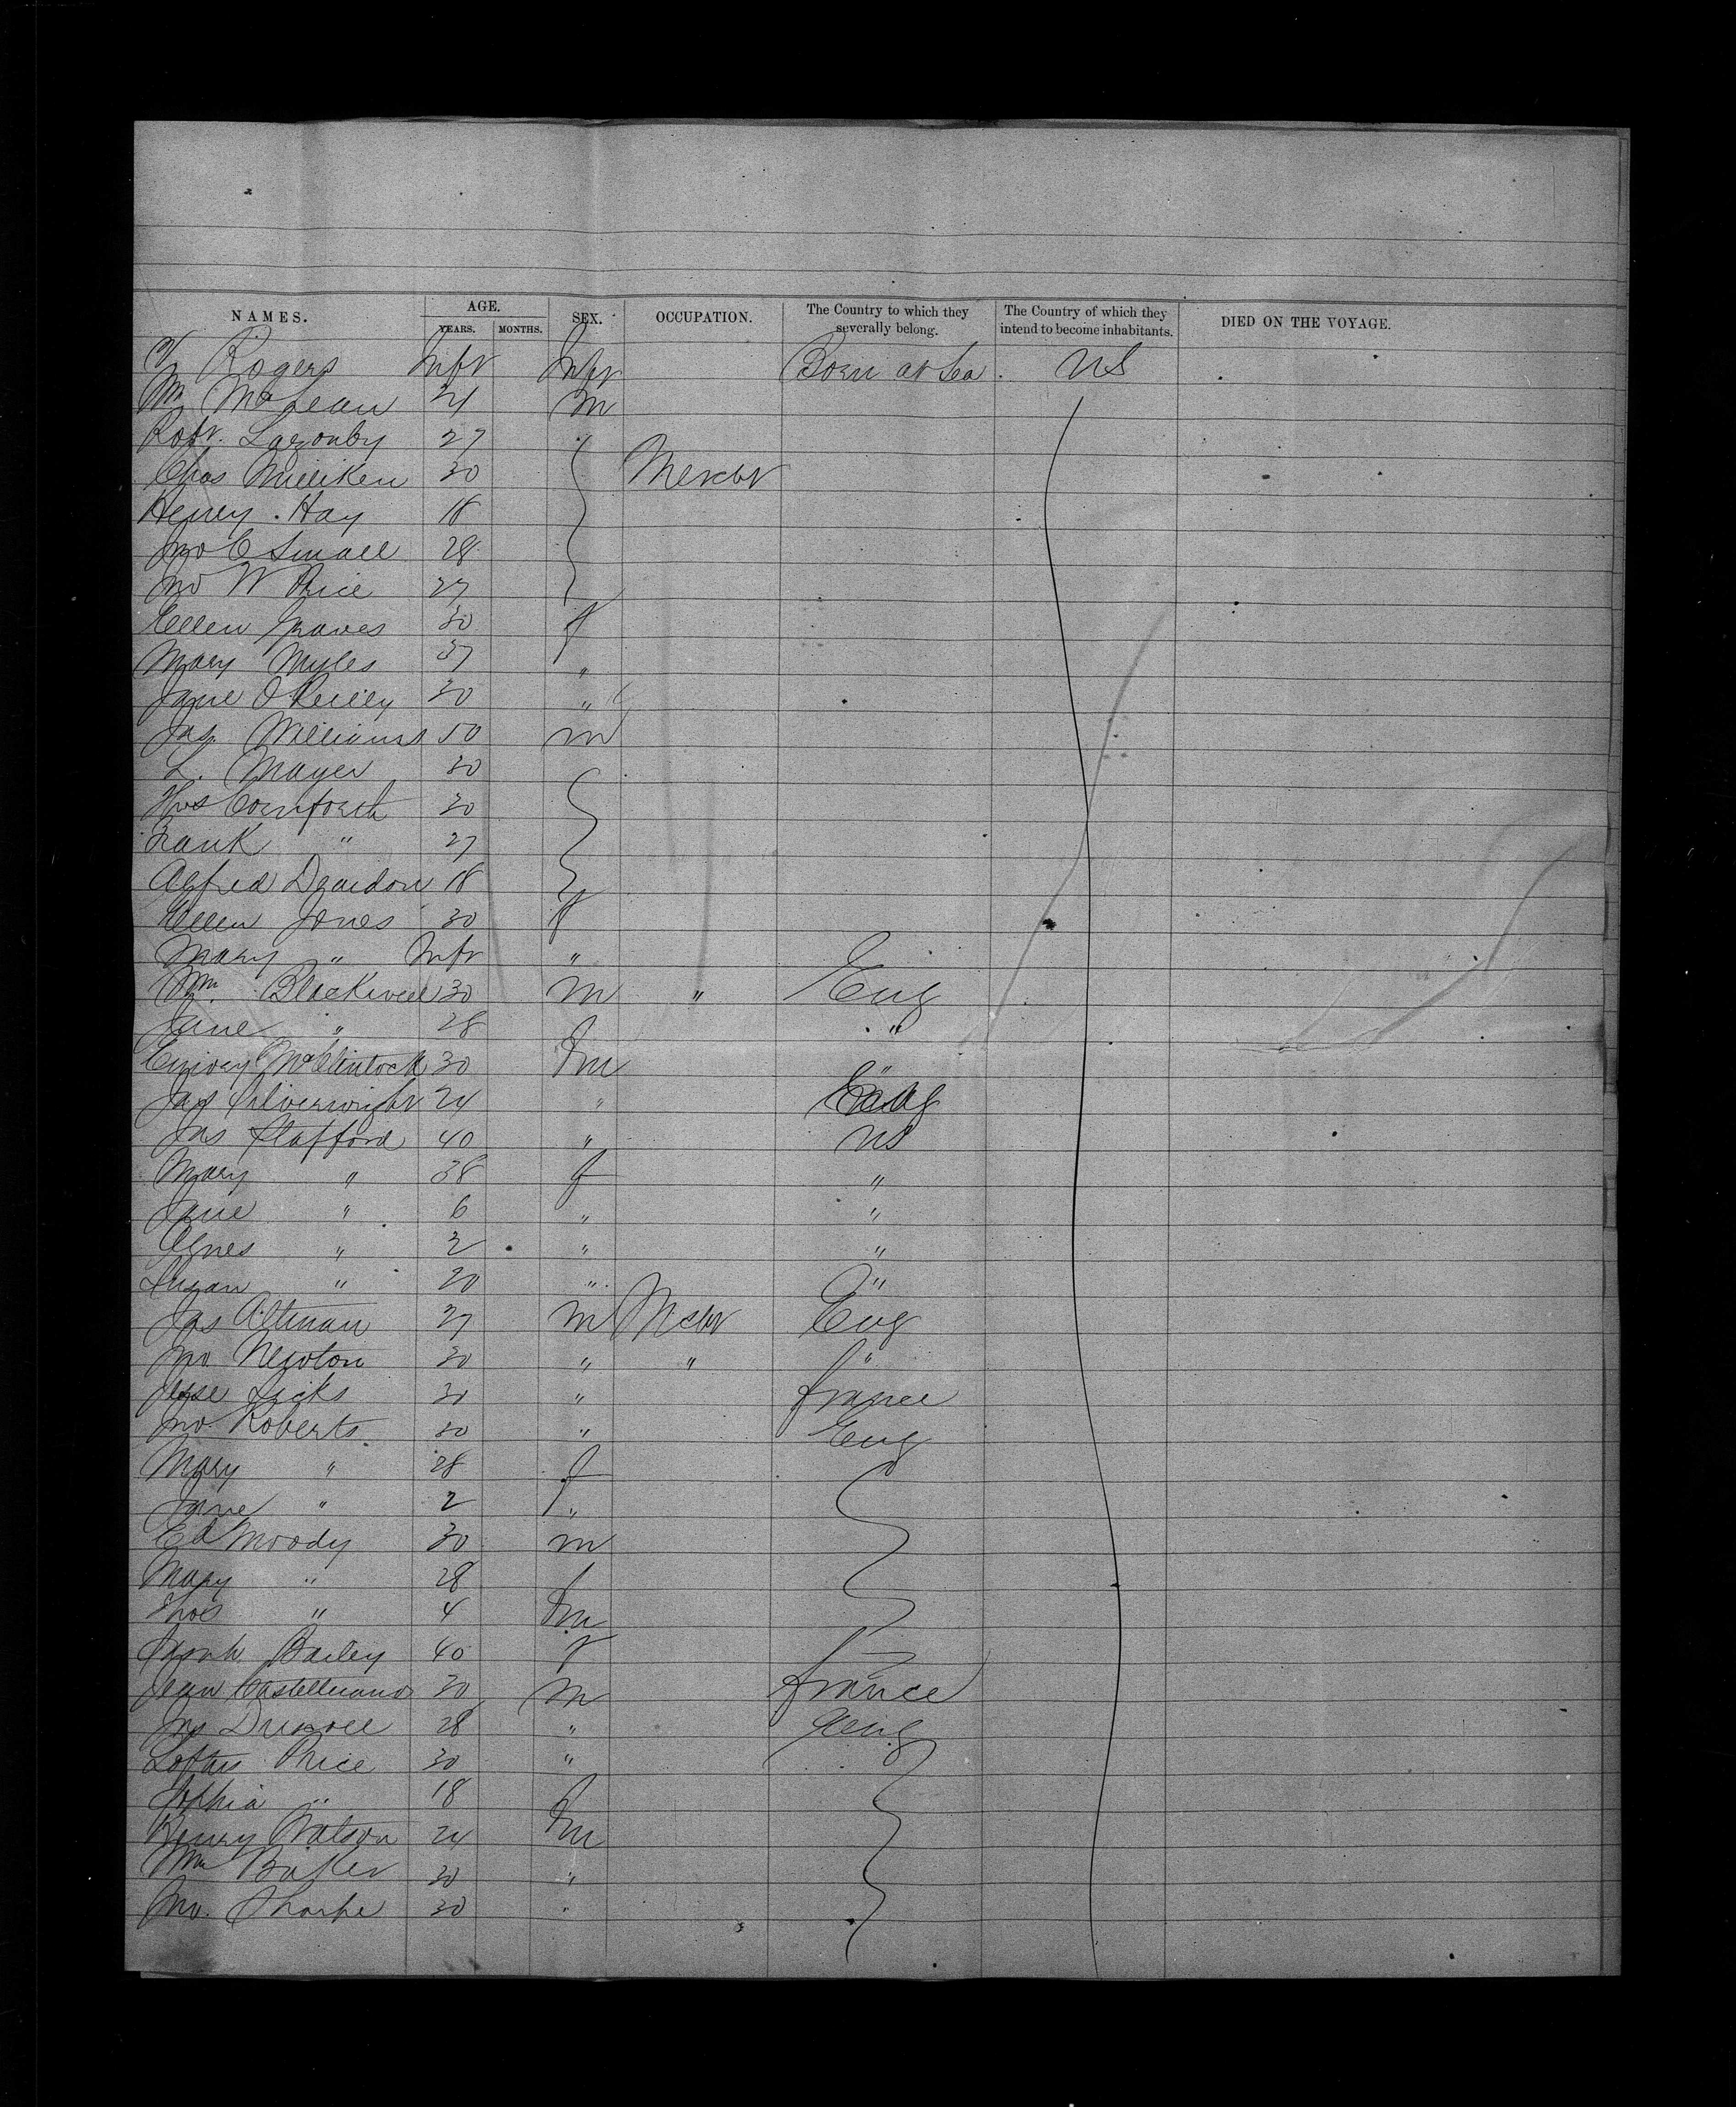 NAMES. AGE. YEARS. MONTHS. SEX. OCCUPATION. The Country to which they severally belong. The Country of which they intend to become inhabitants. DIED ON THE VOYAGE.
Rogers Inft Inft Born at Sea. US
Wm McLean 21 m
Robt. Lazonby 27
Chas Milliken 30 Mercht
Henry Hay 18
Jno C Small 28
Jno W Price 27
Ellen Graves 30 f
Mary Myles 37 "
Jane O'Reilly 30 "
Jas Williams 50 m
L. Mayer 30
Thos Cornforth 30
Frank " 27
Alfred Deardon 18
Ellen Jones 30 f
Mary " Inft "
Wm Blackwell 30 m " Eng
Jane " 28 "
McClintock 30 m "
Jas Silverwright 24 "
Jas Stafford 40 " US
Mary " 38 f "
Jane " 6 " "
Agnes " 2 " "
Susan " 20 " "
Jas Altman 27 m Mcht Eng
Jno. Newton 30 " " "
Jesse Sicks 30 " France
Jno. Roberts 30 " Eng
Mary " 28 f
Jane " 2 "
Ed Moody 30 m
Mary " 28 f
Thos " 4 m
Sarah Bailey 40 f
Jean 30 m France
Jas 28 " Eng
Loftus Price 30 "
Sophia " 18 f
Henry Watson 24 m
Wm Baker 30 "
Jno. Sharpe 30 "